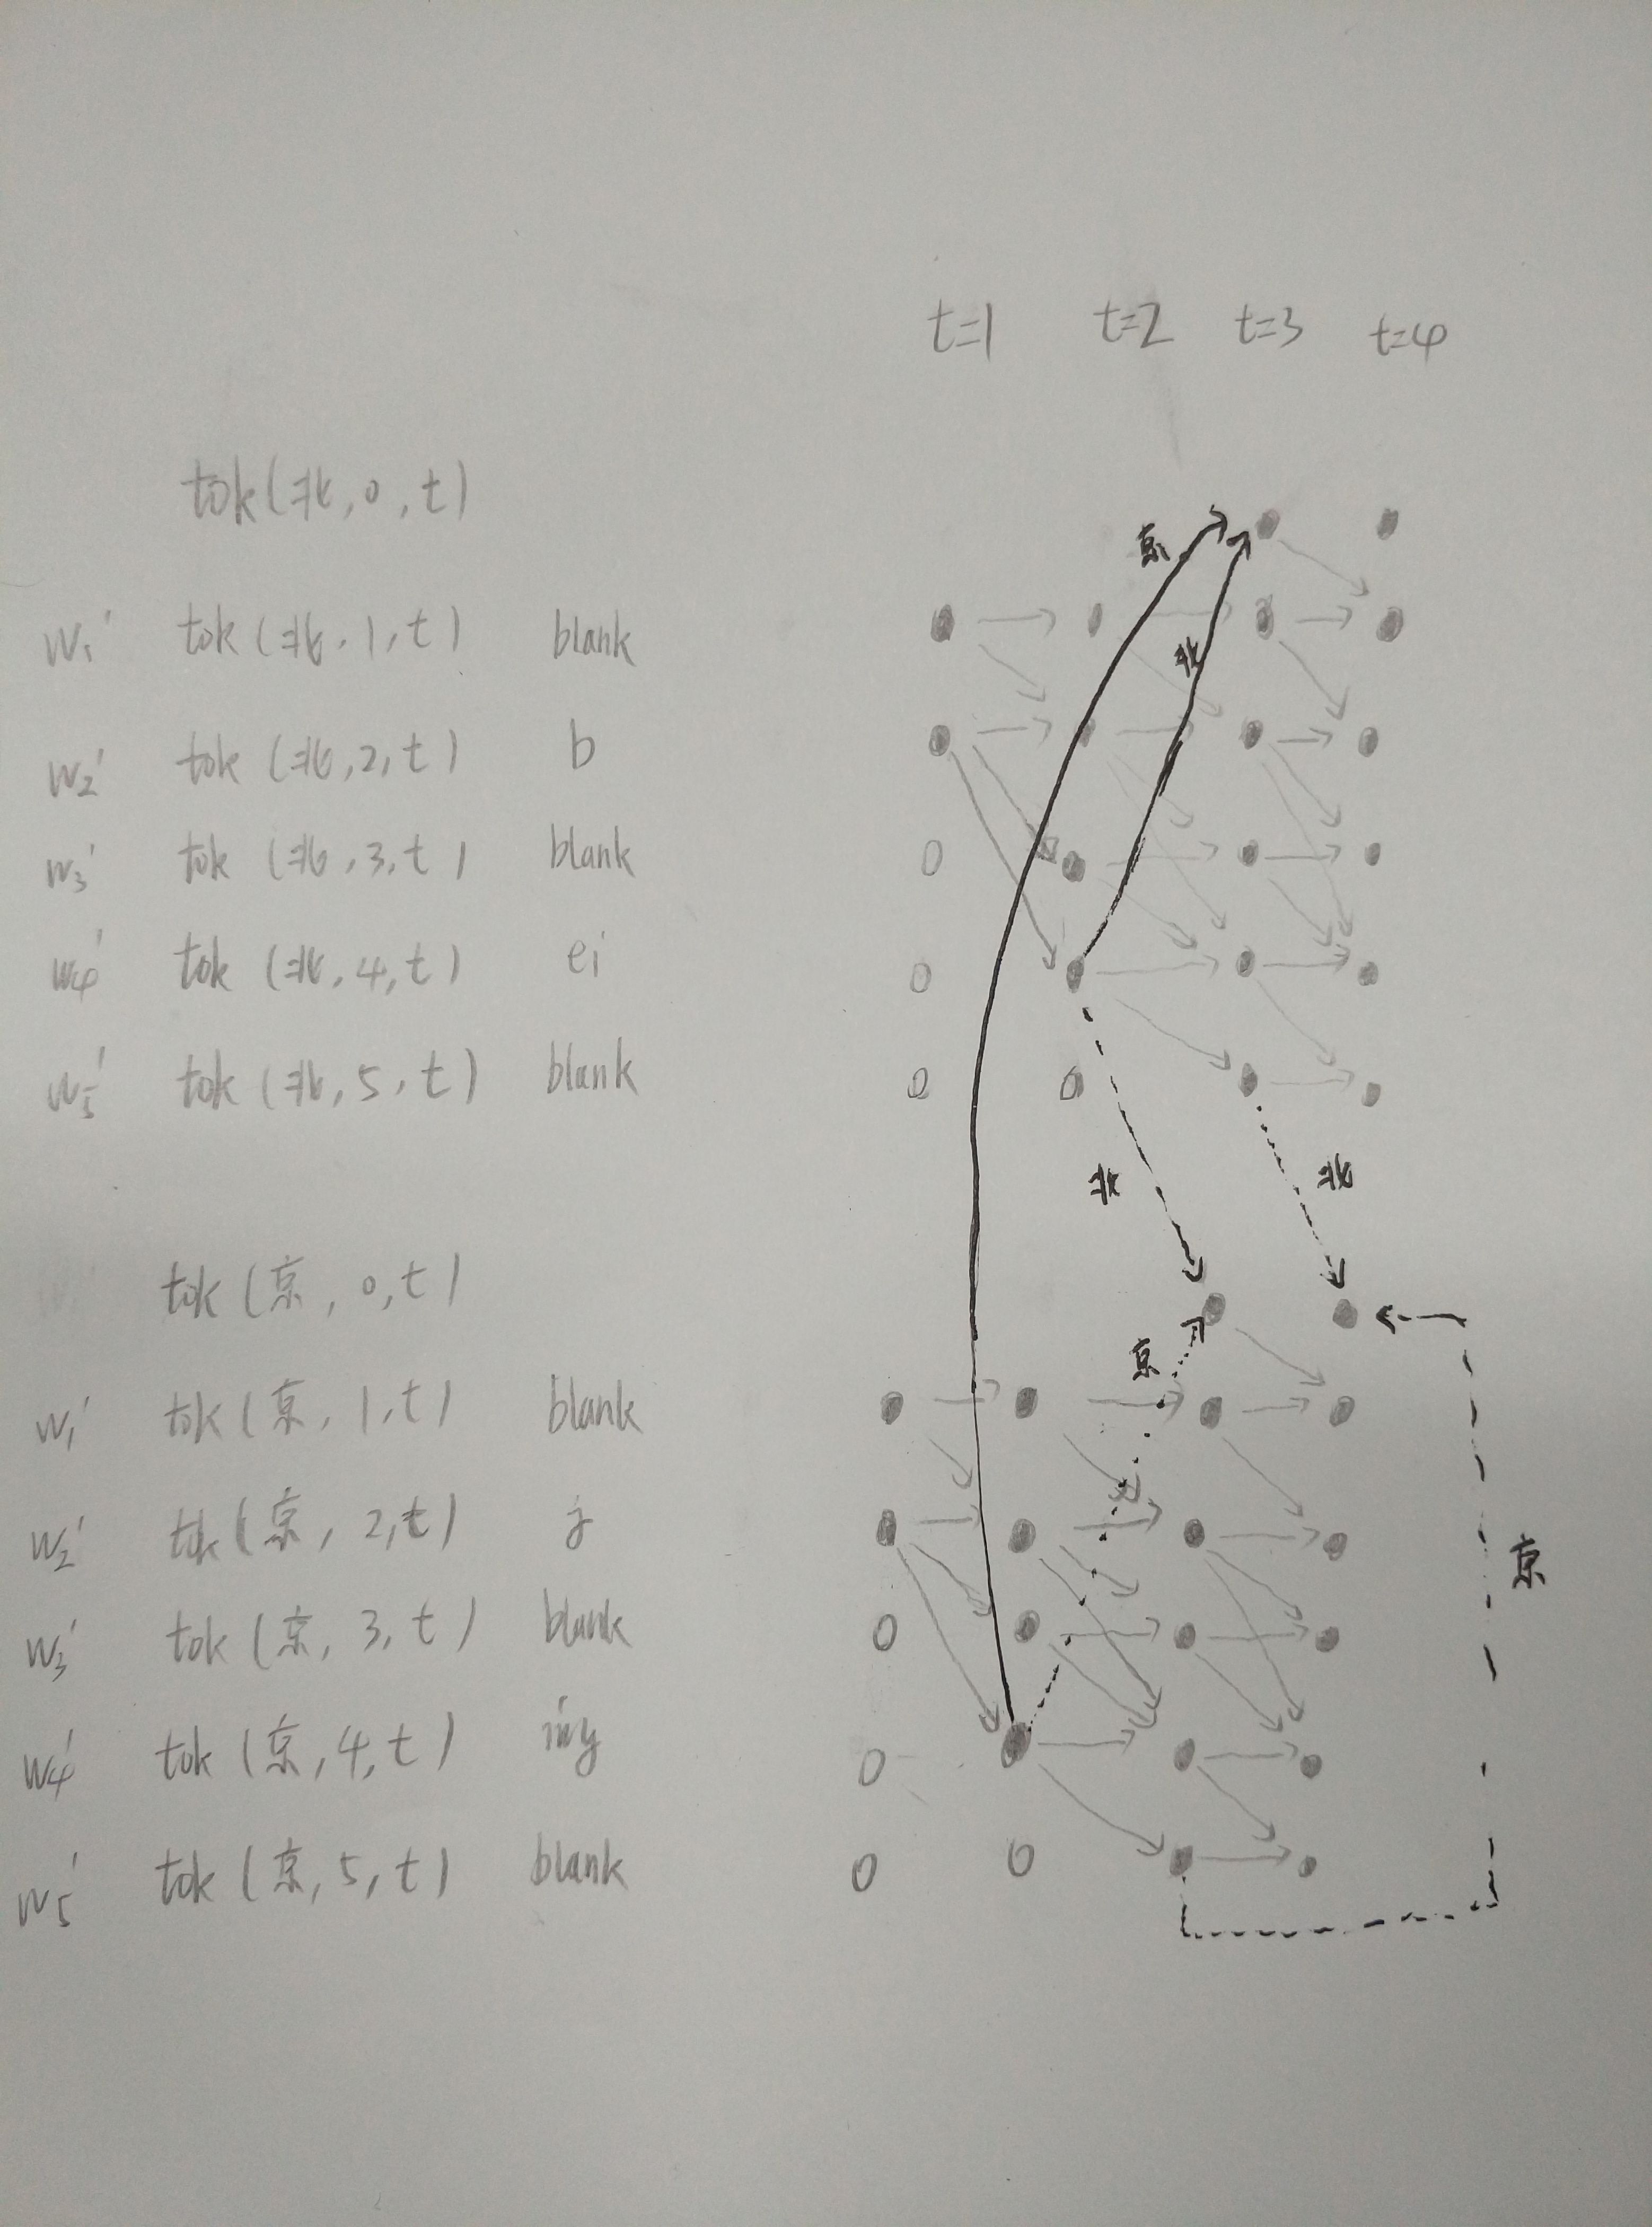 t=1 t=2 t=3 t=4
tok(北,0,t)
京
w₁' tok(北,1,t) blank
北
w₂' tok(北,2,t) b
w₃' tok(北,3,t) blank 0
w₄' tok(北,4,t) ei 0
w₅' tok(北,5,t) blank 0 0
北 北
tok(京,0,t)
京
w₁' tok(京,1,t) blank
w₂' tok(京,2,t) j
京
w₃' tok(京,3,t) blank 0
w₄' tok(京,4,t) ing 0
w₅' tok(京,5,t) blank 0 0